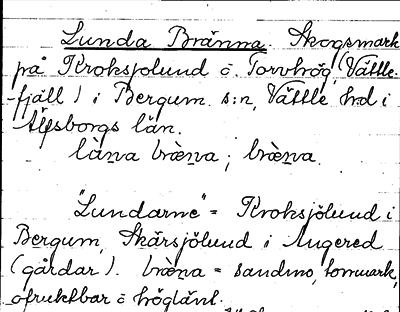 Lunda Bränna. Skogsmark
på Kroksjölund o. Torvhög (Vättle-
fjäll) i Bergum s:n, Vättle hd i
Älfsborgs län.
làna bræ̀na; bræ̀na.
"Lundarne" = Kroksjölund i
Bergum, Skårsjölund i Angered
(gårdar). bræ̀na = sandmo, tommark,
ofruktbar o höglänt.